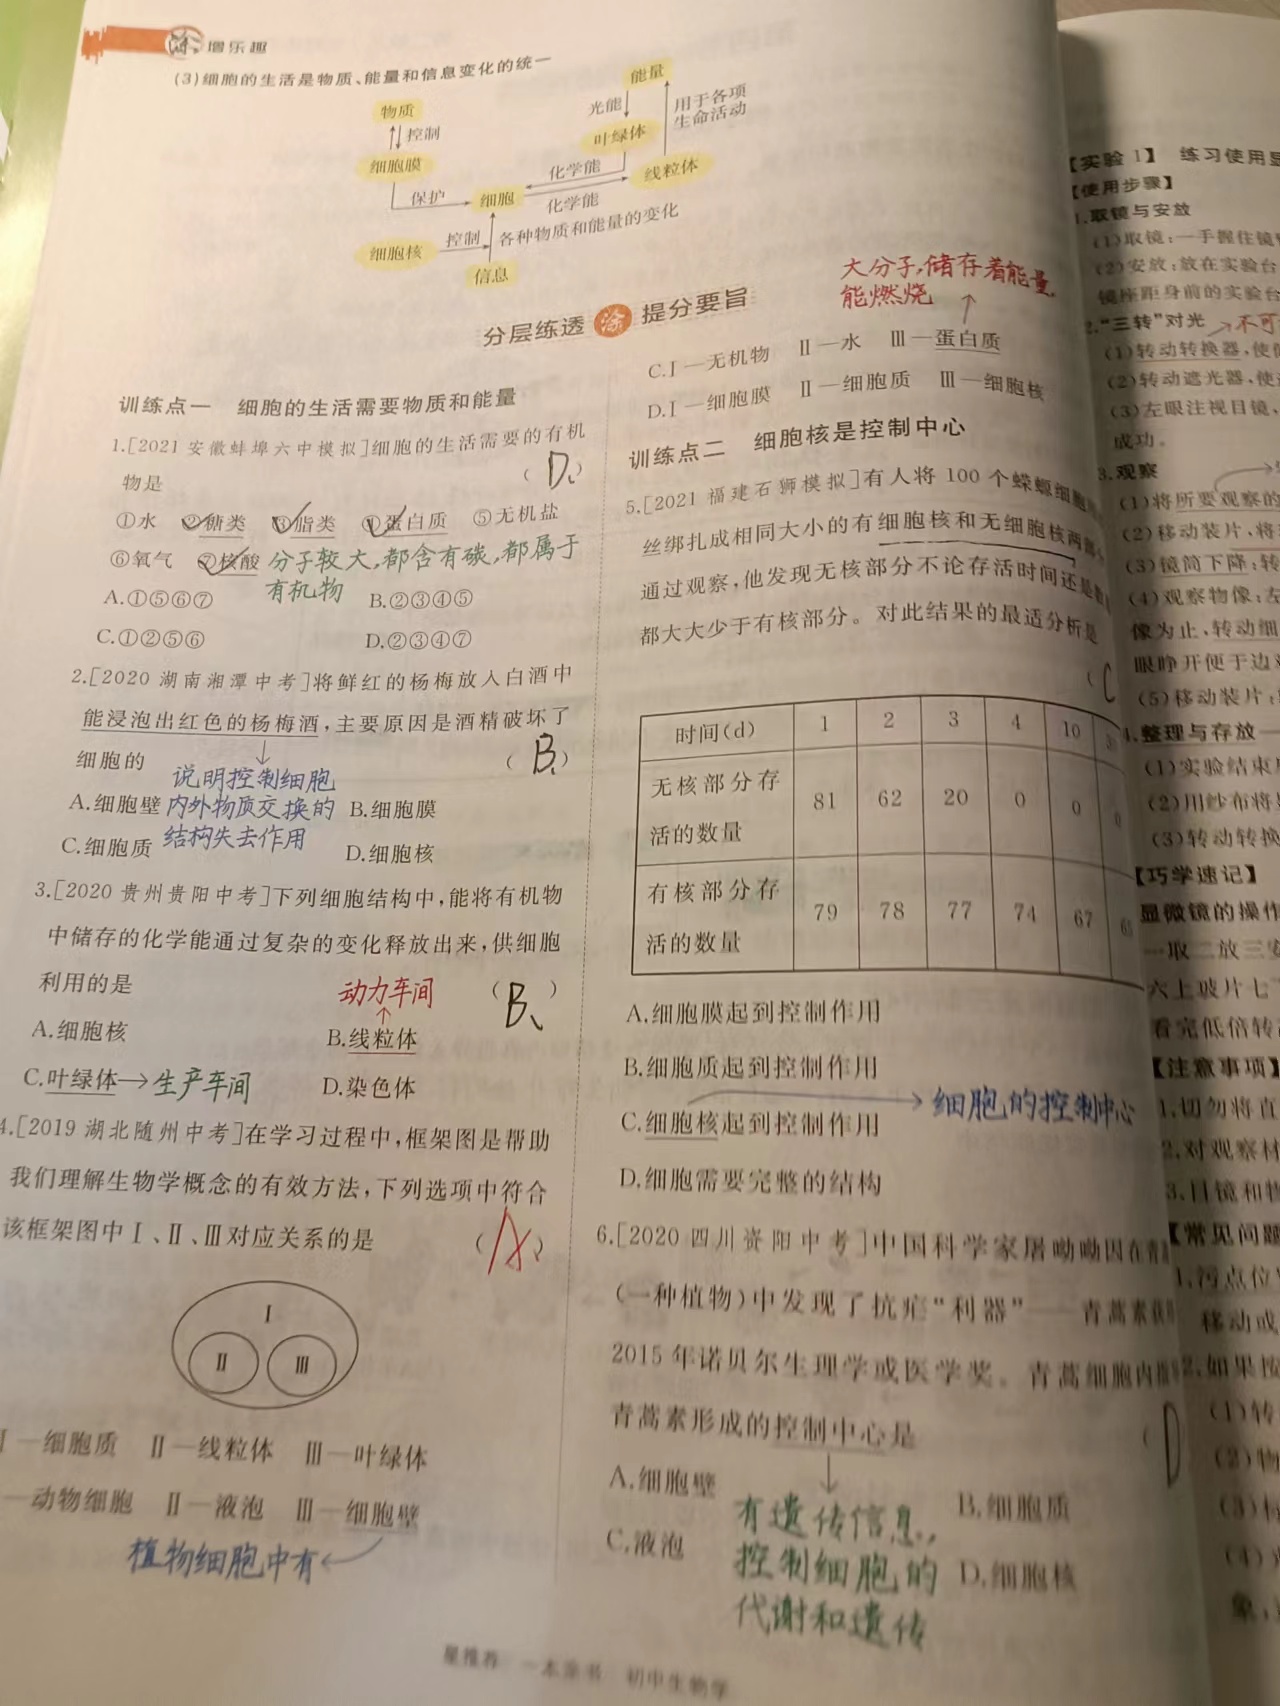 增乐趣
(3)细胞的生活是物质、能量和信息变化的统一
能量
物质
光能
用于各项
生命活动
控制
叶绿体
细胞膜
化学能
线粒体
保护
细胞
化学能
细胞核
控制
各种物质和能量的变化
信息
分层练透 涂 提分要旨
训练点一 细胞的生活需要物质和能量
1.[2021安徽蚌埠六中模拟]细胞的生活需要的有机
物是 ( D、)
①水 ②糖类 ③脂类 ④蛋白质 ⑤无机盐
⑥氧气 ⑦核酸 分子较大,都含有碳,都属于
有机物
A.①⑤⑥⑦ B.②③④⑤
C.①②⑤⑥ D.②③④⑦
2.[2020湖南湘潭中考]将鲜红的杨梅放入白酒中
能浸泡出红色的杨梅酒,主要原因是酒精破坏了
细胞的 ( B、)
说明控制细胞
内外物质交换的
结构失去作用
A.细胞壁 B.细胞膜
C.细胞质 D.细胞核
3.[2020贵州贵阳中考]下列细胞结构中,能将有机物
中储存的化学能通过复杂的变化释放出来,供细胞
利用的是 ( B、)
动力车间
A.细胞核 B.线粒体
C.叶绿体→生产车间 D.染色体
4.[2019湖北随州中考]在学习过程中,框架图是帮助
我们理解生物学概念的有效方法,下列选项中符合
该框架图中Ⅰ、Ⅱ、Ⅲ对应关系的是 ( A、)
Ⅰ
Ⅱ Ⅲ
Ⅰ—细胞质 Ⅱ—线粒体 Ⅲ—叶绿体
—动物细胞 Ⅱ—液泡 Ⅲ—细胞壁
植物细胞中有
大分子,储存着能量,
能燃烧
C.Ⅰ—无机物 Ⅱ—水 Ⅲ—蛋白质
D.Ⅰ—细胞膜 Ⅱ—细胞质 Ⅲ—细胞核
训练点二 细胞核是控制中心
5.[2021福建石狮模拟]有人将100个蝾螈细胞
丝绑扎成相同大小的有细胞核和无细胞核两部
通过观察,他发现无核部分不论存活时间还是数
都大大少于有核部分。对此结果的最适分析是
( C
时间(d) 1 2 3 4 10
无核部分存
活的数量 81 62 20 0 0 0
有核部分存
活的数量 79 78 77 74 67
A.细胞膜起到控制作用
B.细胞质起到控制作用
C.细胞核起到控制作用 细胞的控制中心
D.细胞需要完整的结构
6.[2020四川资阳中考]中国科学家屠呦呦因在青
(一种植物)中发现了抗疟“利器”——青蒿素获
2015年诺贝尔生理学或医学奖。青蒿细胞内
青蒿素形成的控制中心是 ( D
A.细胞壁 B.细胞质
C.液泡 D.细胞核
有遗传信息,
控制细胞的
代谢和遗传
星推荐 一本涂书 初中生物学
【实验1】 练习使用显
【使用步骤】
1.取镜与安放
(1)取镜:一手握住镜
(2)安放:放在实验台
镜座距身前的实验台
2.“三转”对光 不可
(1)转动转换器,使
(2)转动遮光器,使
(3)左眼注视目镜,
成功。
3.观察
(1)将所要观察的
(2)移动装片,将
(3)镜筒下降:转
(4)观察物像:左
像为止,转动细
眼睁开便于边
(5)移动装片:
4.整理与存放
(1)实验结束
(2)用纱布将
(3)转动转换
【巧学速记】
显微镜的操作
一取二放三安
六上玻片七下
看完低倍转
【注意事项】
1.切勿将直
2.对观察材
3.目镜和物
【常见问题
1.污点位
移动或
2.如果按
(1)转
(2)物
(3)
(4)
象,